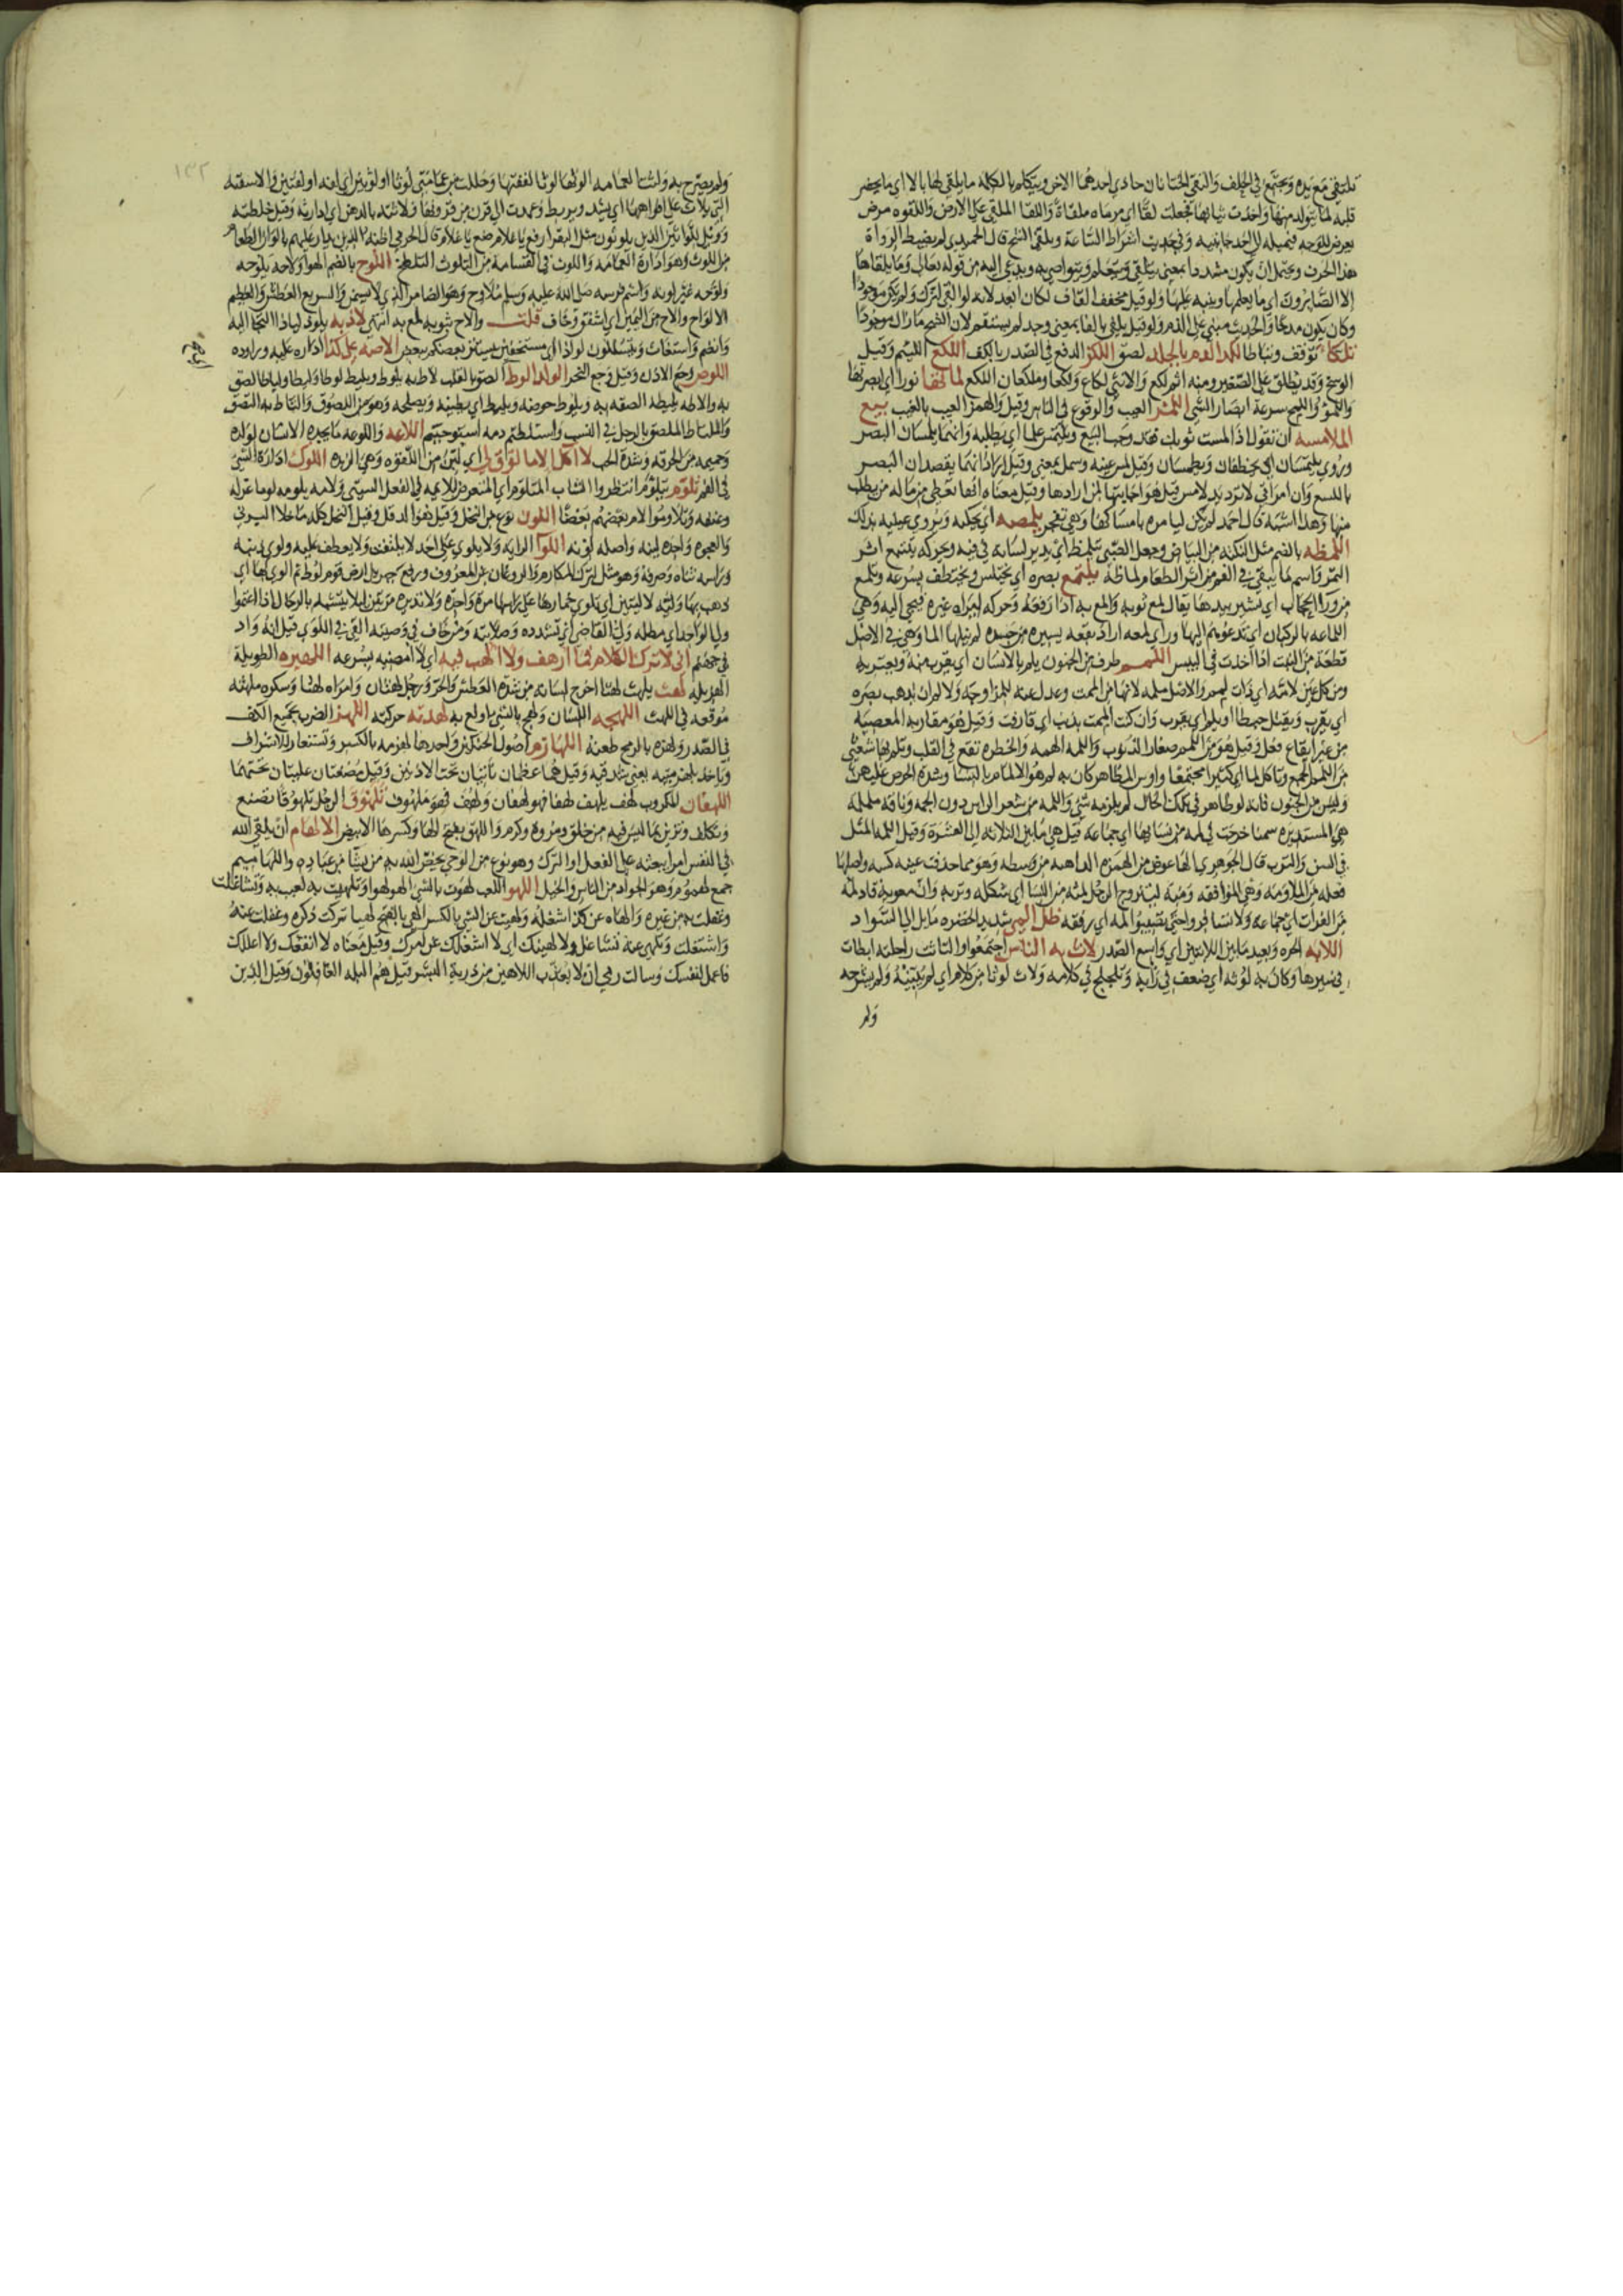 تلتقي مع يده ويجتمع في الحلف والتقى الختانان حاذى احدهما الاخر ويتكلم بالكلمة ما يلقي لها بالا اي ما يحضر
قلبه لما يتولد منها واخذت ثيابها فجعلت لقا اي مرماه ملقاة واللقا الملقى على الارض واللقوه مرض
يعرض للوجه فيميله الى احد جانبيه وفي حديث اشراط الساعة ويلقى الشح قال الحميدي لم يضبط الرواة
هذا الحرف ويحتمل ان يكون مشددا بمعنى يتلقى ويتعلم ويتواصى به ويدعى اليه من قوله تعالى وما يلقاها
الا الصابرون اي ما يعلمها وينبه عليها ولو قيل مخفف القاف لكان ابعد لانه لو القي لترك ولم يكن موجودا
وكان يكون مدحا والحديث مبني على الذم ولو قيل يلفى بالفا بمعنى وجد لم يستقم لان الشح ما زال موجودا
تلكا توقف وتباطا لكد الدم بالجلد لصق اللكز الدفع في الصدر بالكف اللكع اللئيم وقيل
الوسخ وقد يطلق على الصغير ومنه اثم لكع والانثى لكاع ولكعا وملكعان اللكع لماتها نورا اي ابصرتها
واللمؤ واللمح سرعة ابصار الشي اللمز العيب والوقوع في الناس وقيل والهمز العيب بالغيب بيع
الملامسة ان تقول اذا لمست ثوبك فقد وجب البيع ويلتمس علما اي يطلبه وانهما يلمسان البصر
وروي يلتمسان اي يخطفان ويطمسان وقيل لمس عينه وسمل بمعنى وقيل اراد انهما يقصدان البصر
باللسع وان امراتي لا ترد يد لامس قيل هو اجابتها لمن ارادها وقيل معناه انها تعطي من ماله من يطلب
منها وهذا اشبه قال احمد لم يكن ليامره بامساكها وهي تفجر يلمصه اي يحكيه ويروي عيبه بذلك
اللمظة بالضم مثل النكتة من البياض وجعل الصبي يتلمظ اي يدير لسانه في فيه ويحركه يتتبع اثر
التمر واسم ما يبقى في الفم من اثر الطعام لماظة يلتمع بصره اي يختلس ويختطف بسرعة وتلمع
من ورا الحجاب اي تشير بيدها يقال لمع ثوبه والمع به اذا رفعه وحركه ليراه غيره فيجي اليه وهي
قطعة من النبت اذا اخذت في اليبس اللمم طرف من الجنون يلم بالانسان اي يقرب منه ويعتريه
ومن كل عين لامة اي ذات لمم والاصل ملمه لانها من الممت وعدل عنه للمزاوجة ولالم ان يذهب بصره
اي يقرب ويقتل حبطا او يلم اي يقرب وان كنت الممت بذنب اي قارفت وقيل هو مقاربة المعصية
من غير ايقاع فعل وقيل هو من اللمم صغار الذنوب واللمة الهمة والخطرة تقع في القلب وتلم بها شعثي
وليس من الجنون فانه لو ظاهر في تلك الحال لم يلزمه شي واللمة من شعر الراس دون الجمة وناقة ململمة
هي المستديرة سمنا خرجت في لمة من نسائها اي جماعة قيل هي ما بين الثلاثة الى العشرة وقيل اللمة المثل
في السن والترب قال الجوهري الها عوض من الهمزه الذاهبه من وسطه وهو مما حذفت عينه كسه واصلها
فعلة من الملاومة وهي الموافقة ومنه ليتزوج الرجل لمته من النسا اي شكله وتربه وان معوية قاد لمة
من الغواة اي جماعة ولا تسافروا حتى تصيبوا لمة اي رفقة ظل المي شديد الخضره مايل الى السواد
اللابه الحره وبعيد ما بين اللابتين اي واسع الصدر لاث به الناس اجتمعوا والتاثت راحلته ابطات
في سيرها وكان به لوثة اي ضعف في رايه وتلجلج في كلامه ولاث لوثا من كلام اي لم يبينه ولم يشرحه
ولم
١٣٢
ولم يصرح به ولثت العمامه الوثها لوثا لففتها وحللت من عمامتي لوثا او لوثين اي لفه او لفتين والاسقيه
التي يلاث على افواهها اي يشد ويربط وعمدت الى قرن من قرونها فلاثته بالدهن اي ادارته وقيل خلطته
وويل للواثين الذين يلوثون مثل البقر ارفع يا غلام ضع يا غلام قال الحربي اظنه الذين يدار عليهم بالوان الطعام
من اللوث وهو ادارة العمامه واللوث في القسامة من التلوث التلطخ اللوح بالضم الهوا ولاحه يلوحه
ولوحه غير لونه واسم فرسه صلى الله عليه وسلم ملاوح وهو الضامر الذي لا يسمن والسريع العطش والعظيم
الالواح والاح من اليمين اي اشفق وخاف قلت والاح بثوبه لمع به انتهى لاذ به يلوذ لياذا التجا اليه
وانضم واستغاث ويتسللون لواذا اي مستخفين يستتر بعضكم ببعض الاصه على كذا اداره عليه وراوده
اللوص وجع الاذن وقيل وجع النحر الولد الوط الصق بالقلب لاط به يلوط ويليط لوطا وليطا ولياطا لصق
به والاطه يليطه الصقه به ويلوط حوضه ويليط اي يطينه ويصلحه وهو من اللصوق والتاط به التصق
والملتاط الملصق بالرجل في النسب واستلطتم دمه استوجبتم اللاعه واللوعه ما يجده الانسان لولده
وحميمه من الحرقه وشدة الحب لا اكل الا ما لوق لي اي لين من اللوقه وهي الزبده اللوك ادارة الشي
في الفم تلوم يتلوم انتظر والشاب المتلوم اي المتعرض للايمه في الفعل السيئ ولامه يلومه لوما عزله
وعنفه وتلاوموا لام بعضهم بعضا اللون نوع من النخل وقيل هو الدقل وقيل النخل كله ما خلا البرني
والعجوه واحده لينه واصله لونه اللوا الرايه ولا يلوي على احد لا يلتفت ولا يعطف عليه ولوى ذنبه
وراسه ثناه وصرفه وهو مثل لترك المكارم والروغان عن المعروف ورفع جبريل ارض قوم لوط ثم الوى بها اي
ذهب بها ولية لا ليتين اي تلوي خمارها على راسها مرة واحده ولا تديره مرتين لئلا يتشبه بالرجال اذا اعتموا
ولي الواجد اي مطله ولي القاضي اي تشدده وصلابته ومن خاف في وصيته القي في اللوى قيل انه واد
في جهنم اني لا اترك الكلام فما ارهف ولا الهب فيه اي لا امضيه بسرعه اللهبره الطويلة
الهزيله لهث يلهث لهثا اخرج لسانه من شدة العطش والحر ورجل لهثان وامراه لهثا وسكره ملهثه
موقعه في اللهث اللهجه اللسان ولهج بالشي اولع به لهدته حركته اللهز الضرب بجميع الكف
في الصدر ولهزه بالرمح طعنه اللهازم اصول الحنكين واحدها لهزمه بالكسر وتستعار للاشراف
وياخذ بلهزمتيه يعني شدقيه وقيل هما عظمان ناتيان تحت الاذنين وقيل مضغتان عليتان تحتهما
اللهفان المكروب لهف يلهف لهفا فهو لهفان ولهف فهو ملهوف تلهوق الرجل يتلهوق تصنع
وتكلف وتزين بما ليس فيه من خلق ومروة وكرم واللهق بفتح الها وكسرها الابيض الالهام ان يلقي الله
في النفس امرا يبعثه على الفعل او الترك وهو نوع من الوحي يخص الله به من يشا من عباده واللهاميم
جمع لهموم وهو الجواد من الناس والخيل اللهو اللعب لهوت بالشي الهو لهوا وتلهيت به لعب به وتشاغلت
وغفلت به من غيره والهاه عن كذا اشغله ولهيت عن الشي بالكسر الهى بالفتح لهيا تركت ذكره وغفلت عنه
واشتغلت وتلهى عنه تشاغل ولا الهينك اي لا اشغلك عن امرك وقيل معناه لا انفعك ولا اعللك
فاعمل لنفسك وسالت ربي ان لا يعذب اللاهين من ذرية البشر قيل هم البله الغافلون وقيل الذين